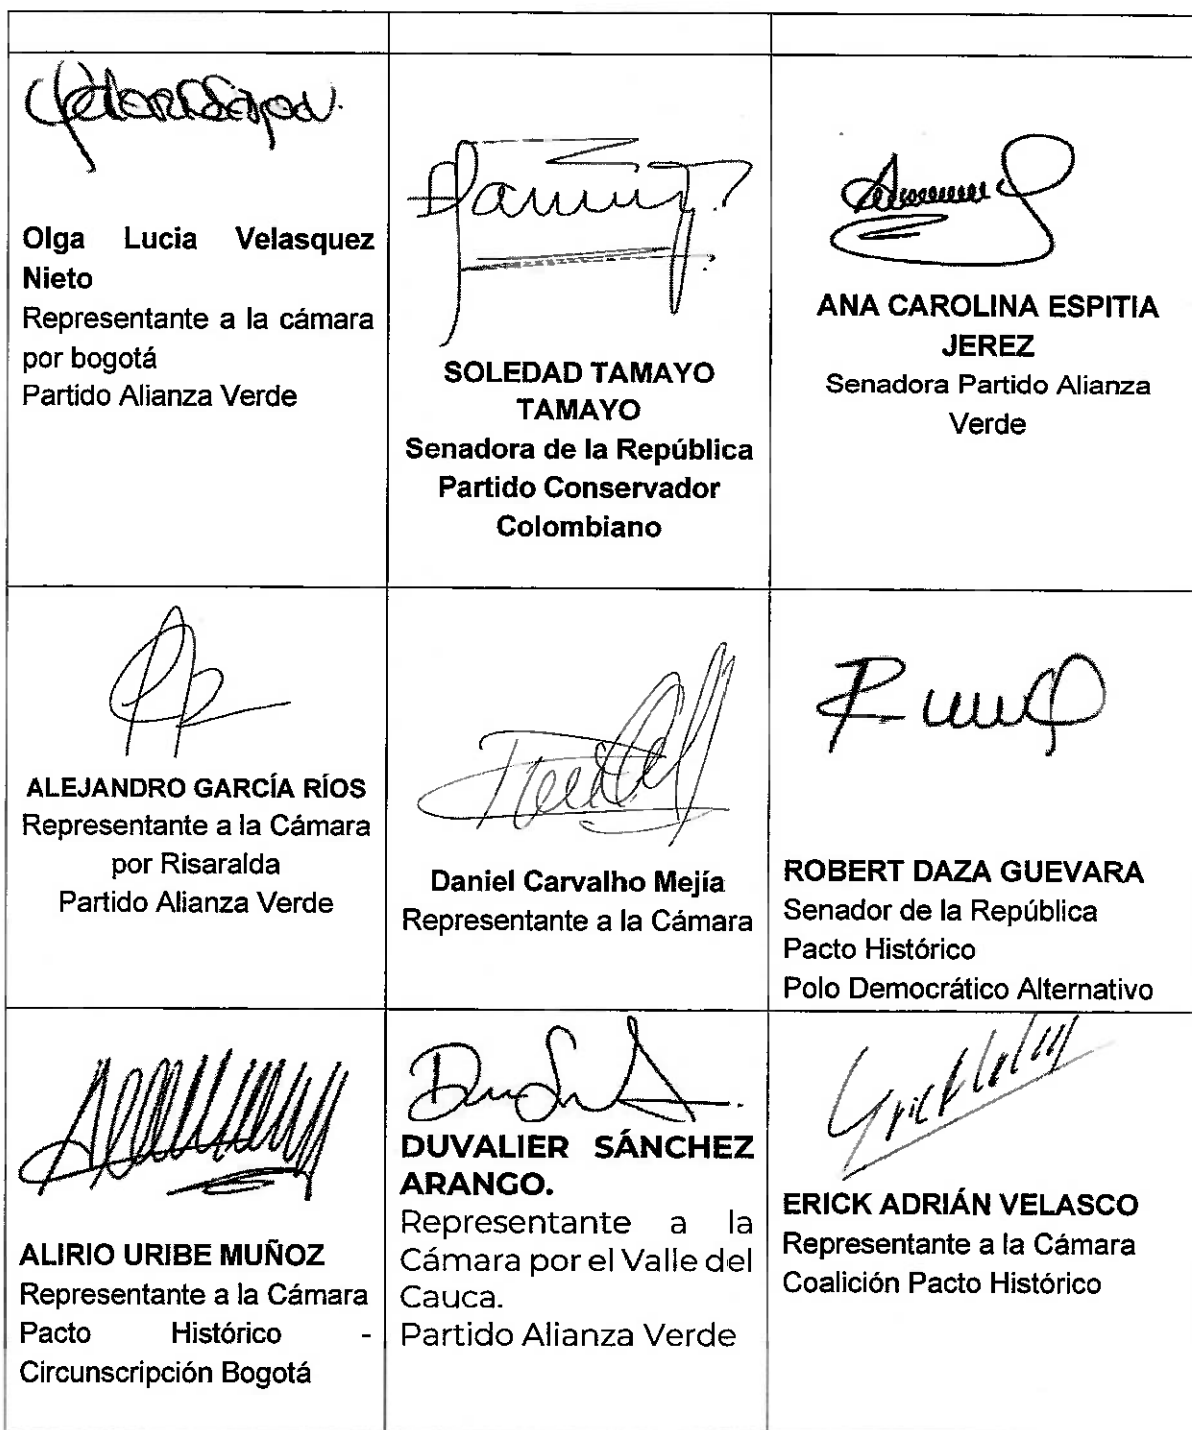 Olga Lucia Velasquez
Nieto
Representante a la cámara
por bogotá
Partido Alianza Verde
SOLEDAD TAMAYO
TAMAYO
Senadora de la República
Partido Conservador
Colombiano
ANA CAROLINA ESPITIA
JEREZ
Senadora Partido Alianza
Verde
ALEJANDRO GARCÍA RÍOS
Representante a la Cámara
por Risaralda
Partido Alianza Verde
Daniel Carvalho Mejía
Representante a la Cámara
ROBERT DAZA GUEVARA
Senador de la República
Pacto Histórico
Polo Democrático Alternativo
ALIRIO URIBE MUÑOZ
Representante a la Cámara
Pacto Histórico -
Circunscripción Bogotá
DUVALIER SÁNCHEZ
ARANGO.
Representante a la
Cámara por el Valle del
Cauca.
Partido Alianza Verde
ERICK ADRIÁN VELASCO
Representante a la Cámara
Coalición Pacto Histórico